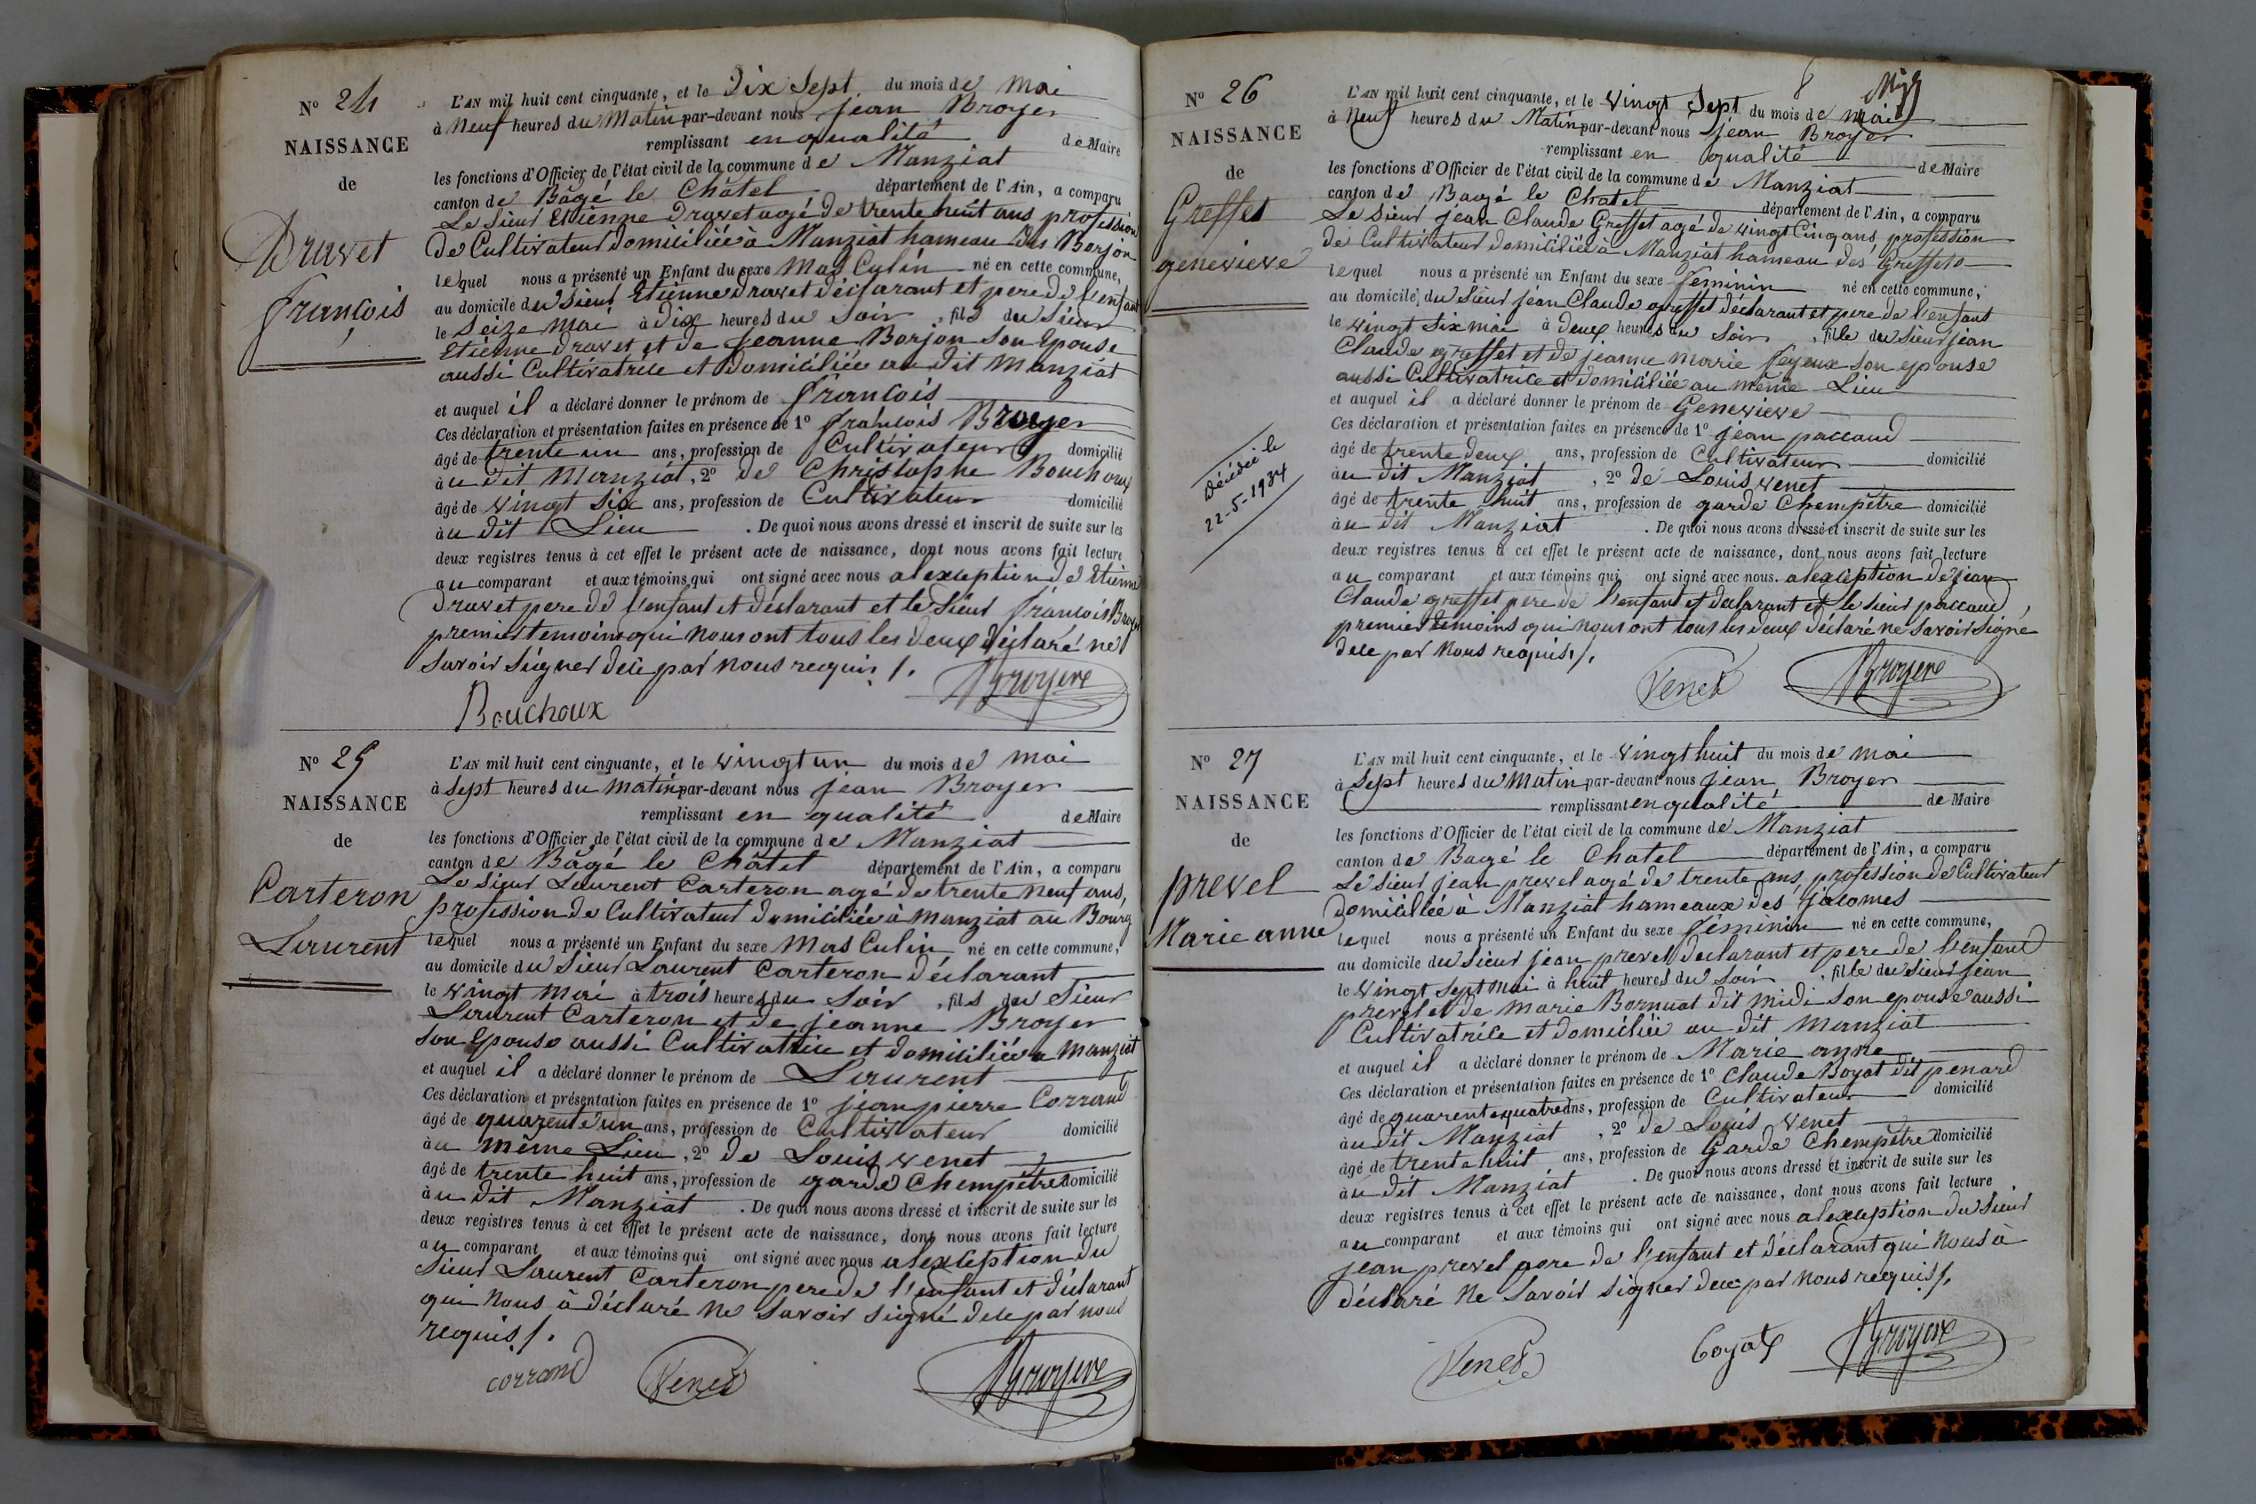 N° 24
NAISSANCE
de
Druvet
françois
L'AN mil huit cent cinquante, et le Dix Sept du mois de Mai
à Neuf heures du Matin par-devant nous jean Broyer
remplissant en qualité de Maire
les fonctions d'Officier de l'état civil de la commune de Manziat
canton de Bâgé le Châtel département de l'Ain, a comparu
Le Sieur Etienne Druvet agé de trente huit ans profession
de Cultivateur domiciliée à Manziat hameau des Borjon
lequel nous a présenté un Enfant du sexe Mas Culin né en cette commune,
au domicile du Sieur Etienne druvet déclarant et pere de l'enfant
le Seize Mai à dix heures du Soir, fils du Sieur
Etienne druvet et de jeanne Borjon Son Epouse
aussi Cultivatrice et domiciliée au dit Manziat
et auquel il a déclaré donner le prénom de françois
Ces déclaration et présentation faites en présence de 1° françois Broyer
âgé de trente un ans, profession de Cultivateur domicilié
au dit Manziat, 2° de Christophe Bouchoux
âgé de vingt Six ans, profession de Cultivateur domicilié
au dit Lieu. De quoi nous avons dressé et inscrit de suite sur les
deux registres tenus à cet effet le présent acte de naissance, dont nous avons fait lecture
au comparant et aux témoins qui ont signé avec nous alexception de Etienne
druvet pere de l'enfant et déclarant et le Sieur françois Broyer
premier temoins qui nous ont tous les deux déclaré ne
Savoir Signer dece par nous requis /.
Bouchoux
Broyere
N° 25
NAISSANCE
de
Carteron
Laurent
L'AN mil huit cent cinquante, et le vingt un du mois de Mai
à Sept heures du matin par-devant nous jean Broyer
remplissant en qualité de Maire
les fonctions d'Officier de l'état civil de la commune de Manziat
canton de Bâgé le Châtel département de l'Ain, a comparu
Le Sieur Laurent Carteron agé de trente Neuf ans,
profession de Cultivateur domiciliée à Manziat au Bourg
lequel nous a présenté un Enfant du sexe Mas Culin né en cette commune,
au domicile du Sieur Laurent Carteron déclarant
le vingt Mai à trois heures du Soir, fils du Sieur
Laurent Carteron et de jeanne Broyer
Son Epouse aussi Cultivatrice et domiciliée a Manziat
et auquel il a déclaré donner le prénom de Laurent
Ces déclaration et présentation faites en présence de 1° jean pierre Corrand
âgé de quarente un ans, profession de Cultivateur domicilié
au même Lieu, 2° de Louis venet
âgé de trente huit ans, profession de garde Chempêtre domicilié
au dit Manziat. De quoi nous avons dressé et inscrit de suite sur les
deux registres tenus à cet effet le présent acte de naissance, dont nous avons fait lecture
au comparant et aux témoins qui ont signé avec nous alexception du
Sieur Laurent Carteron pere de l'enfant et déclarant
qui Nous à déclaré Ne Savoir Signé dece par nous
requis /.
corrand
Venet
Broyere
N° 26
NAISSANCE
de
Greffet
genevieve
Décédée le
22-5-1934
L'AN mil huit cent cinquante, et le vingt Sept du mois de Mai
à Neuf heures du Matin par-devant nous jean Broyer
remplissant en qualité de Maire
les fonctions d'Officier de l'état civil de la commune de Manziat
canton de Bagé le Chatel département de l'Ain, a comparu
Le Sieur jean Claude Greffet agé de vingt Cinq ans profession
de Cultivateur domiciliée à Manziat hameau des Greffets
lequel nous a présenté un Enfant du sexe feminin né en cette commune,
au domicile du Sieur jean Claude greffet déclarant et pere de l'enfant
le vingt Six mai à deux heures du Soir, fille du Sieur jean
Claude greffet et de jeanne Marie feyeux son epouse
aussi Cultivatrice et domiciliée au même Lieu
et auquel il a déclaré donner le prénom de Genevieve
Ces déclaration et présentation faites en présence de 1° jean paccaud
âgé de trente deux ans, profession de Cultivateur domicilié
au dit Manziat, 2° de Louis venet
âgé de trente huit ans, profession de garde Chempêtre domicilié
au dit Manziat. De quoi nous avons dressé et inscrit de suite sur les
deux registres tenus à cet effet le présent acte de naissance, dont nous avons fait lecture
au comparant et aux témoins qui ont signé avec nous. alexception de jean
Claude greffet pere de l'enfant et declarant et le Sieur paccaud
premier temoins qui nous ont tout les deux déclaré ne Savoir Signé
dece par Nous requis /.
Venet
Broyere
N° 27
NAISSANCE
de
prevel
Marie anne
L'AN mil huit cent cinquante, et le vingt huit du mois de Mai
à Sept heures du Matin par-devant nous jean Broyer
remplissant en qualité de Maire
les fonctions d'Officier de l'état civil de la commune de Manziat
canton de Bagé le Chatel département de l'Ain, a comparu
Le Sieur jean prevel agé de trente ans, profession de Cultivateur
domiciliée à Manziat hameaux des jalomes
lequel nous a présenté un Enfant du sexe féminin né en cette commune,
au domicile du Sieur jean prevel declarant et pere de l'enfant
le vingt Sept Mai à huit heures du Soir, fille du Sieur jean
prevel et de Marie Bornuat dit midi Son epouse aussi
Cultivatrice et domiciliée au dit Manziat
et auquel il a déclaré donner le prénom de Marie anne
Ces déclaration et présentation faites en présence de 1° Claude Boyat dit penard
âgé de quarente quatre ans, profession de Cultivateur domicilié
au dit Manziat, 2° de Louis venet
âgé de trente huit ans, profession de Garde Chempêtre domicilié
au dit Manziat. De quoi nous avons dressé et inscrit de suite sur les
deux registres tenus à cet effet le présent acte de naissance, dont nous avons fait lecture
au comparant et aux témoins qui ont signé avec nous alexception du Sieur
jean prevel pere de l'enfant et déclarant qui nous à
déclaré Ne Savoir Signer dece par Nous requis /.
Venet
boyat
Broyere